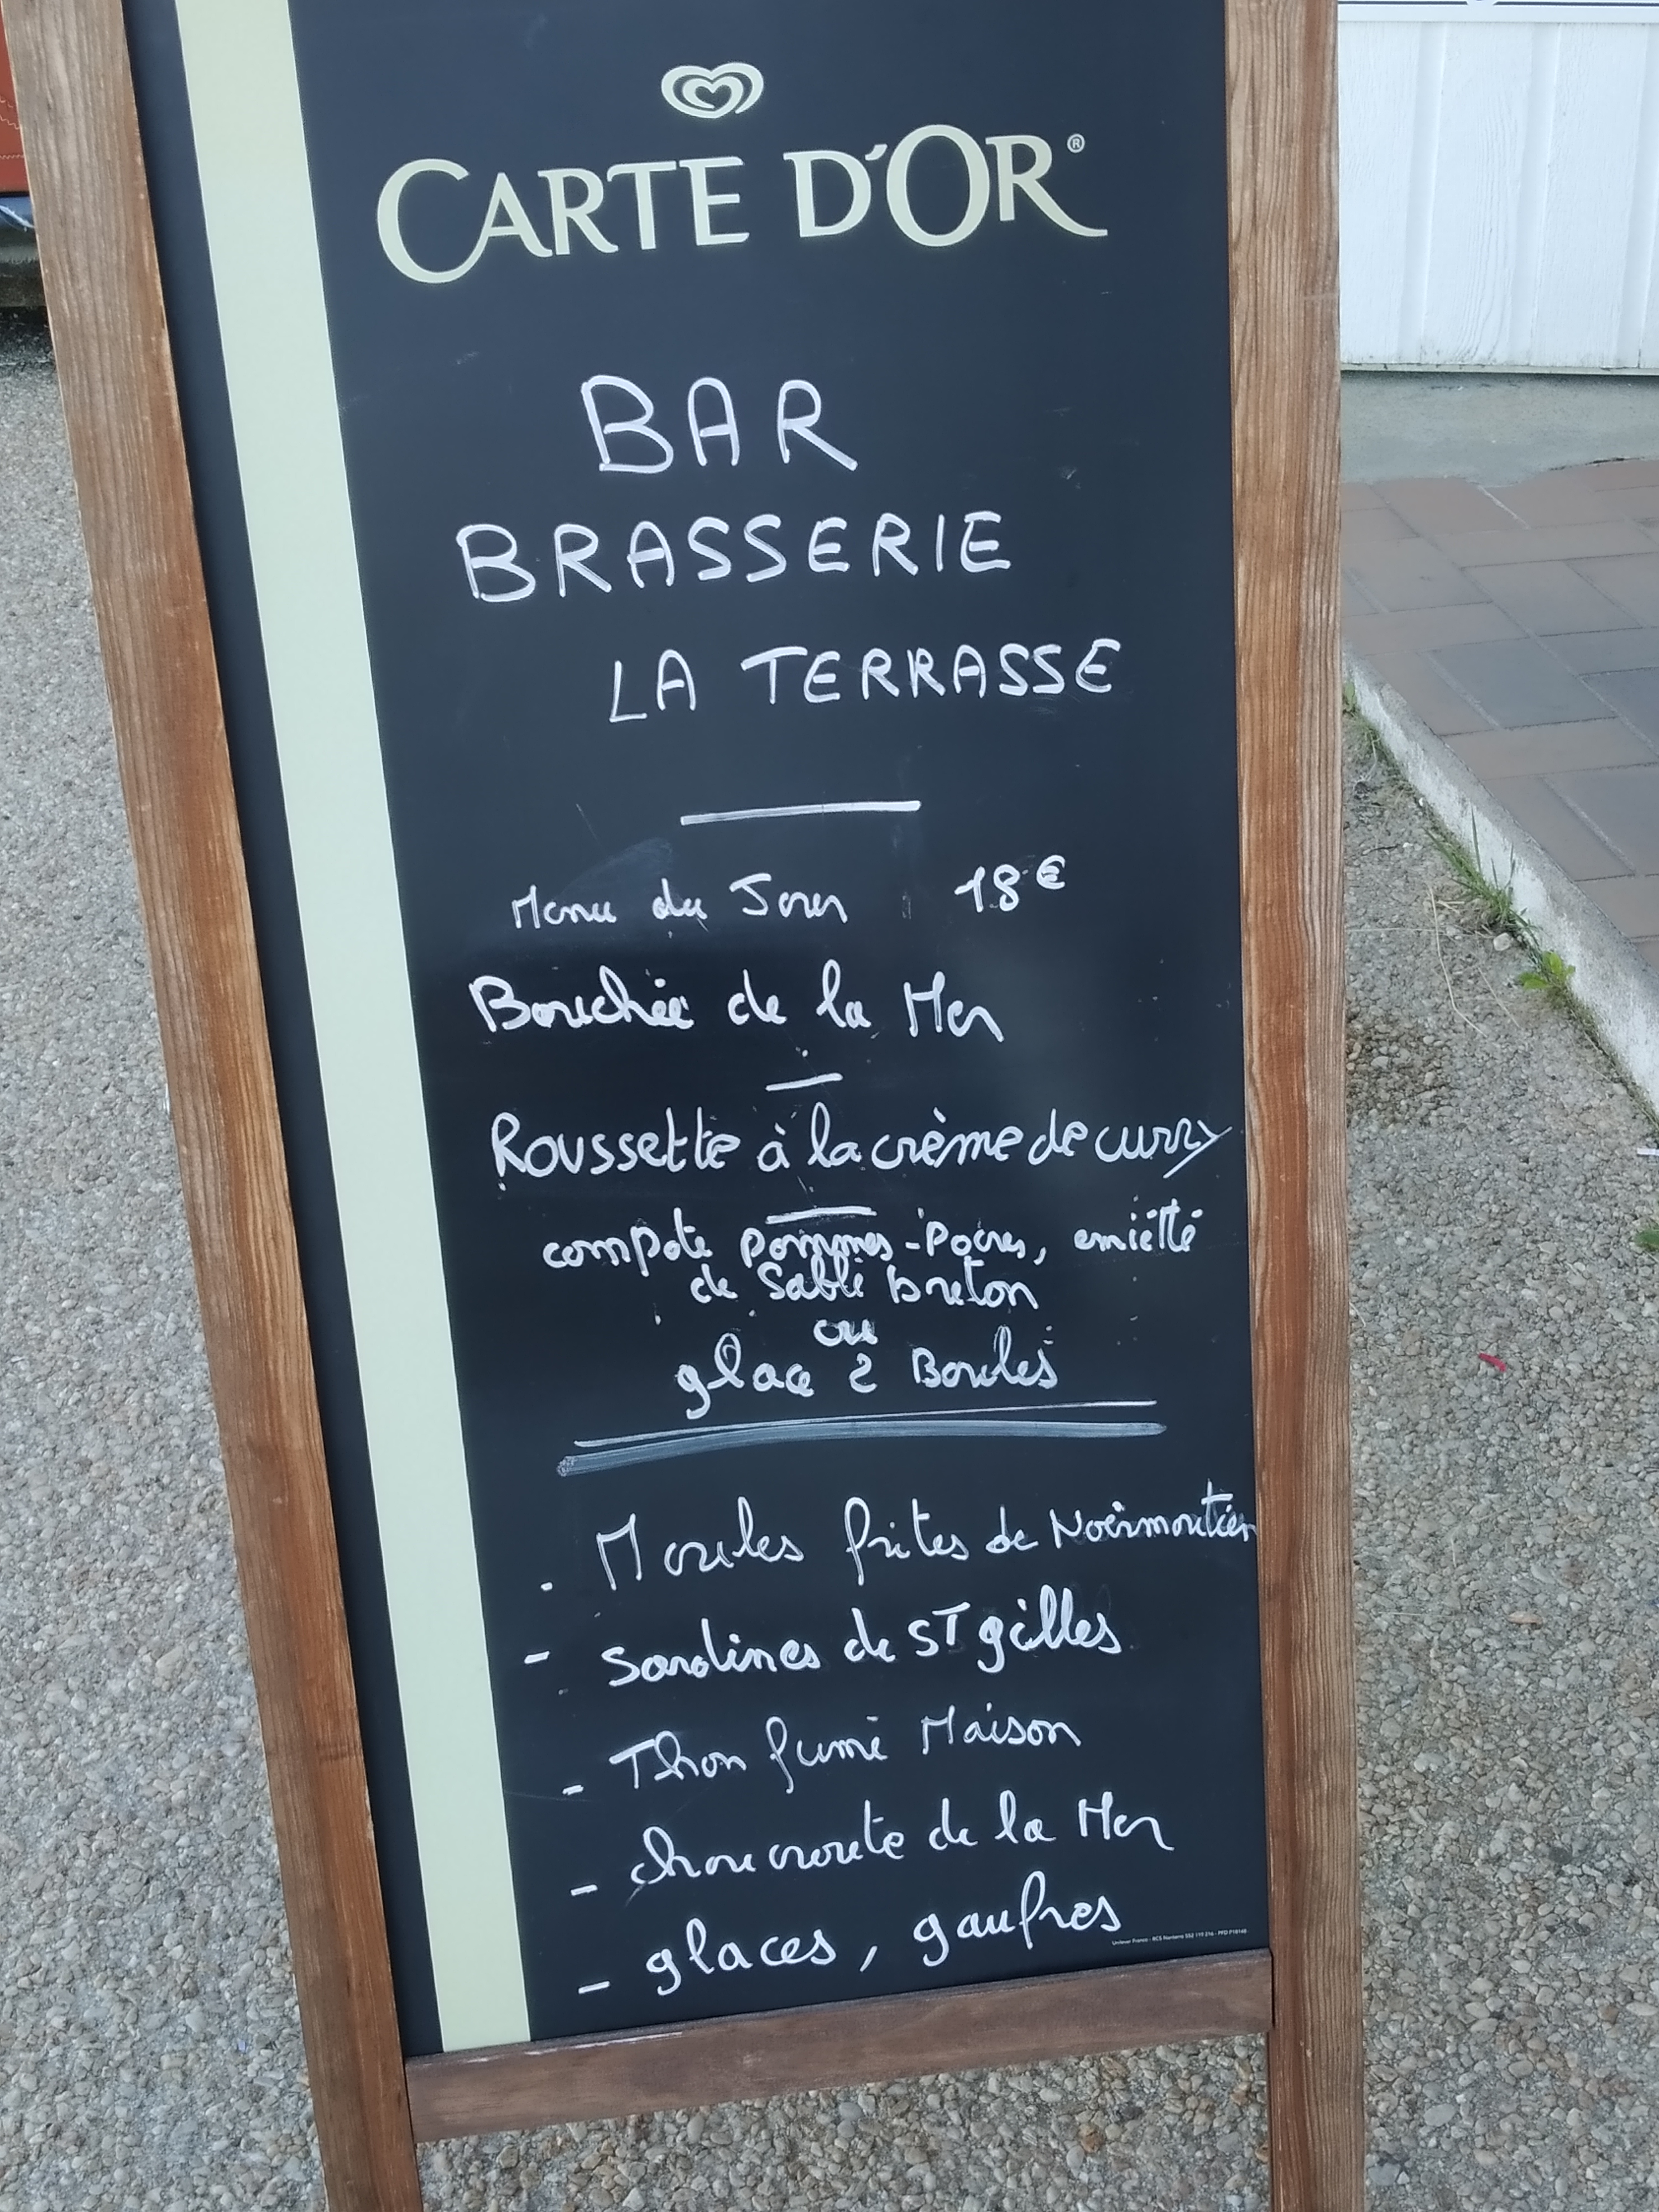 CARTE D'OR®
BAR
BRASSERIE
LA TERRASSE
Menu du Jour 18€
Bouchée de la Mer
Roussette à la crème de curry
compote pommes-Poires, emietté
de Sablé Breton
ou
glace 2 Boules
- Moules frites de Noirmoutier
- Sardines de ST gilles
- Thon fumé Maison
- choucroute de la Mer
- glaces, gaufres